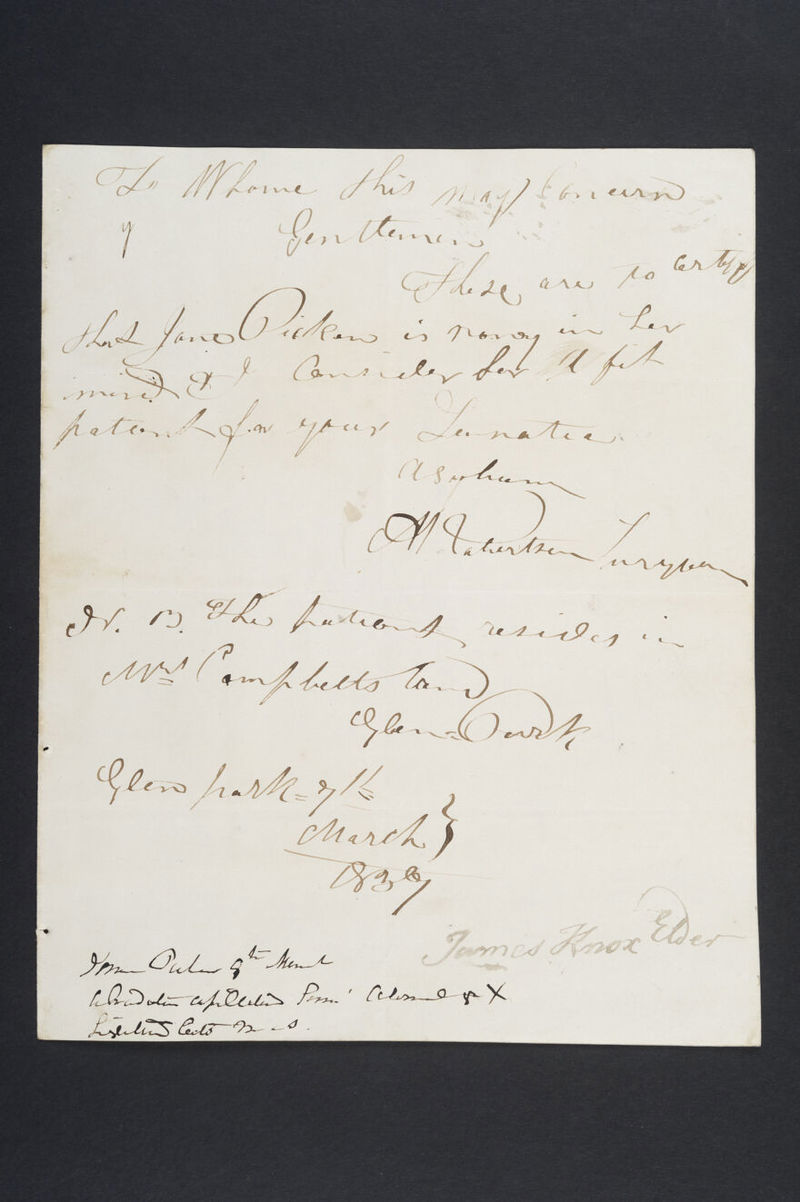 To Whome this may Concern
Gentlemen
These are to certify
that Jane Picken is rong in her
mind & I Consider her A fit
patient for your Lunatic
Asylum
M Robertson Surgeon
N. B. The patient resides in
Mrs Campbells Land
Glen = Park
Glen park = 7th
March }
1837
James Knox Elder
8th